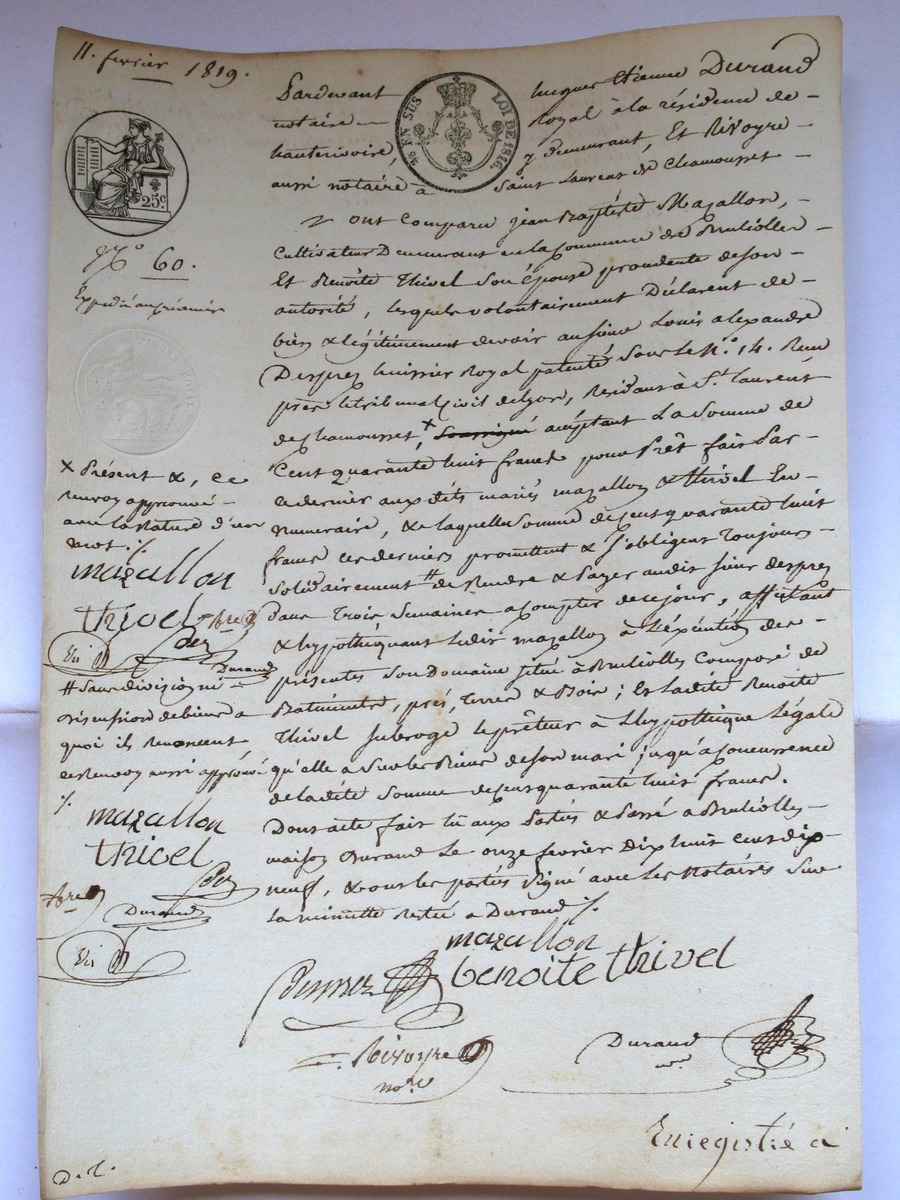 11. fevrier 1819.
25 EN SUS LOI DE 1816.
25c.
N.o 60.
Pardevant hugues Etienne Durand
notaire Royal à la résidence de
hauterivoire, y demeurant, Et Rivoyre
aussi notaire à Saint Laurent de Chamousset
ont comparu jean Baptiste Mazallon,
cultivateur Demeurant en la commune de Brulioller
Et Benoite Thivel son Epouse procédente de son
autorité, lesquels volontairement Déclarent
bien & légitimement devoir au sieur Louis alexandre
Desprez huissier Royal patenté sous le N.o 14. Reçu
près le tribunal civil de Lyon, Résidant à St. laurent
de chamousset, x soussigné acceptant La Somme de
Cent quarante huit francs pour Prêt fait Par
ce dernier aux dits mariés mazallon & thivel En
Numéraire, & laquelle somme de cent quarante huit
francs ces derniers promettent & s'obligent Toujours
Solidairement # de Rendre & Payer audit sieur desprez
dans Trois Semaines à compter de ce jour, affectant
& hypothéquant ledit mazallon à l'exécution des
présentes Son Domaine situé à Brulliolles Composé de
Batiments, prés, Terres & Bois; Et ladite Benoite
Thivel subroge le prêteur à L'hypothèque Légale
qu'elle a sur les Biens de son mari jusqu'à concurrence
de ladite somme de cent quarante huit francs.
Dont acte fait lu aux Parties & Passé a Brulliolles
maison Durand Le onze fevrier Dix huit cent dix
neuf, & ont les parties Signé avec Les Notaires Sur
La minutte Restée a Durand ./.
x Présent &, ce
Renvoy approuvé
avec la Rature d'un
mot ./.
mazallon
thivel
Durand
# Sans division ni
discussion de biens a
quoi ils Renoncent
ce Renvoy aussi approuvé
./.
mazallon
thivel
Durand
mazallon
Desprez benoite thivel
Rivoyre
nore
Durand
Enregistré à
D. T.